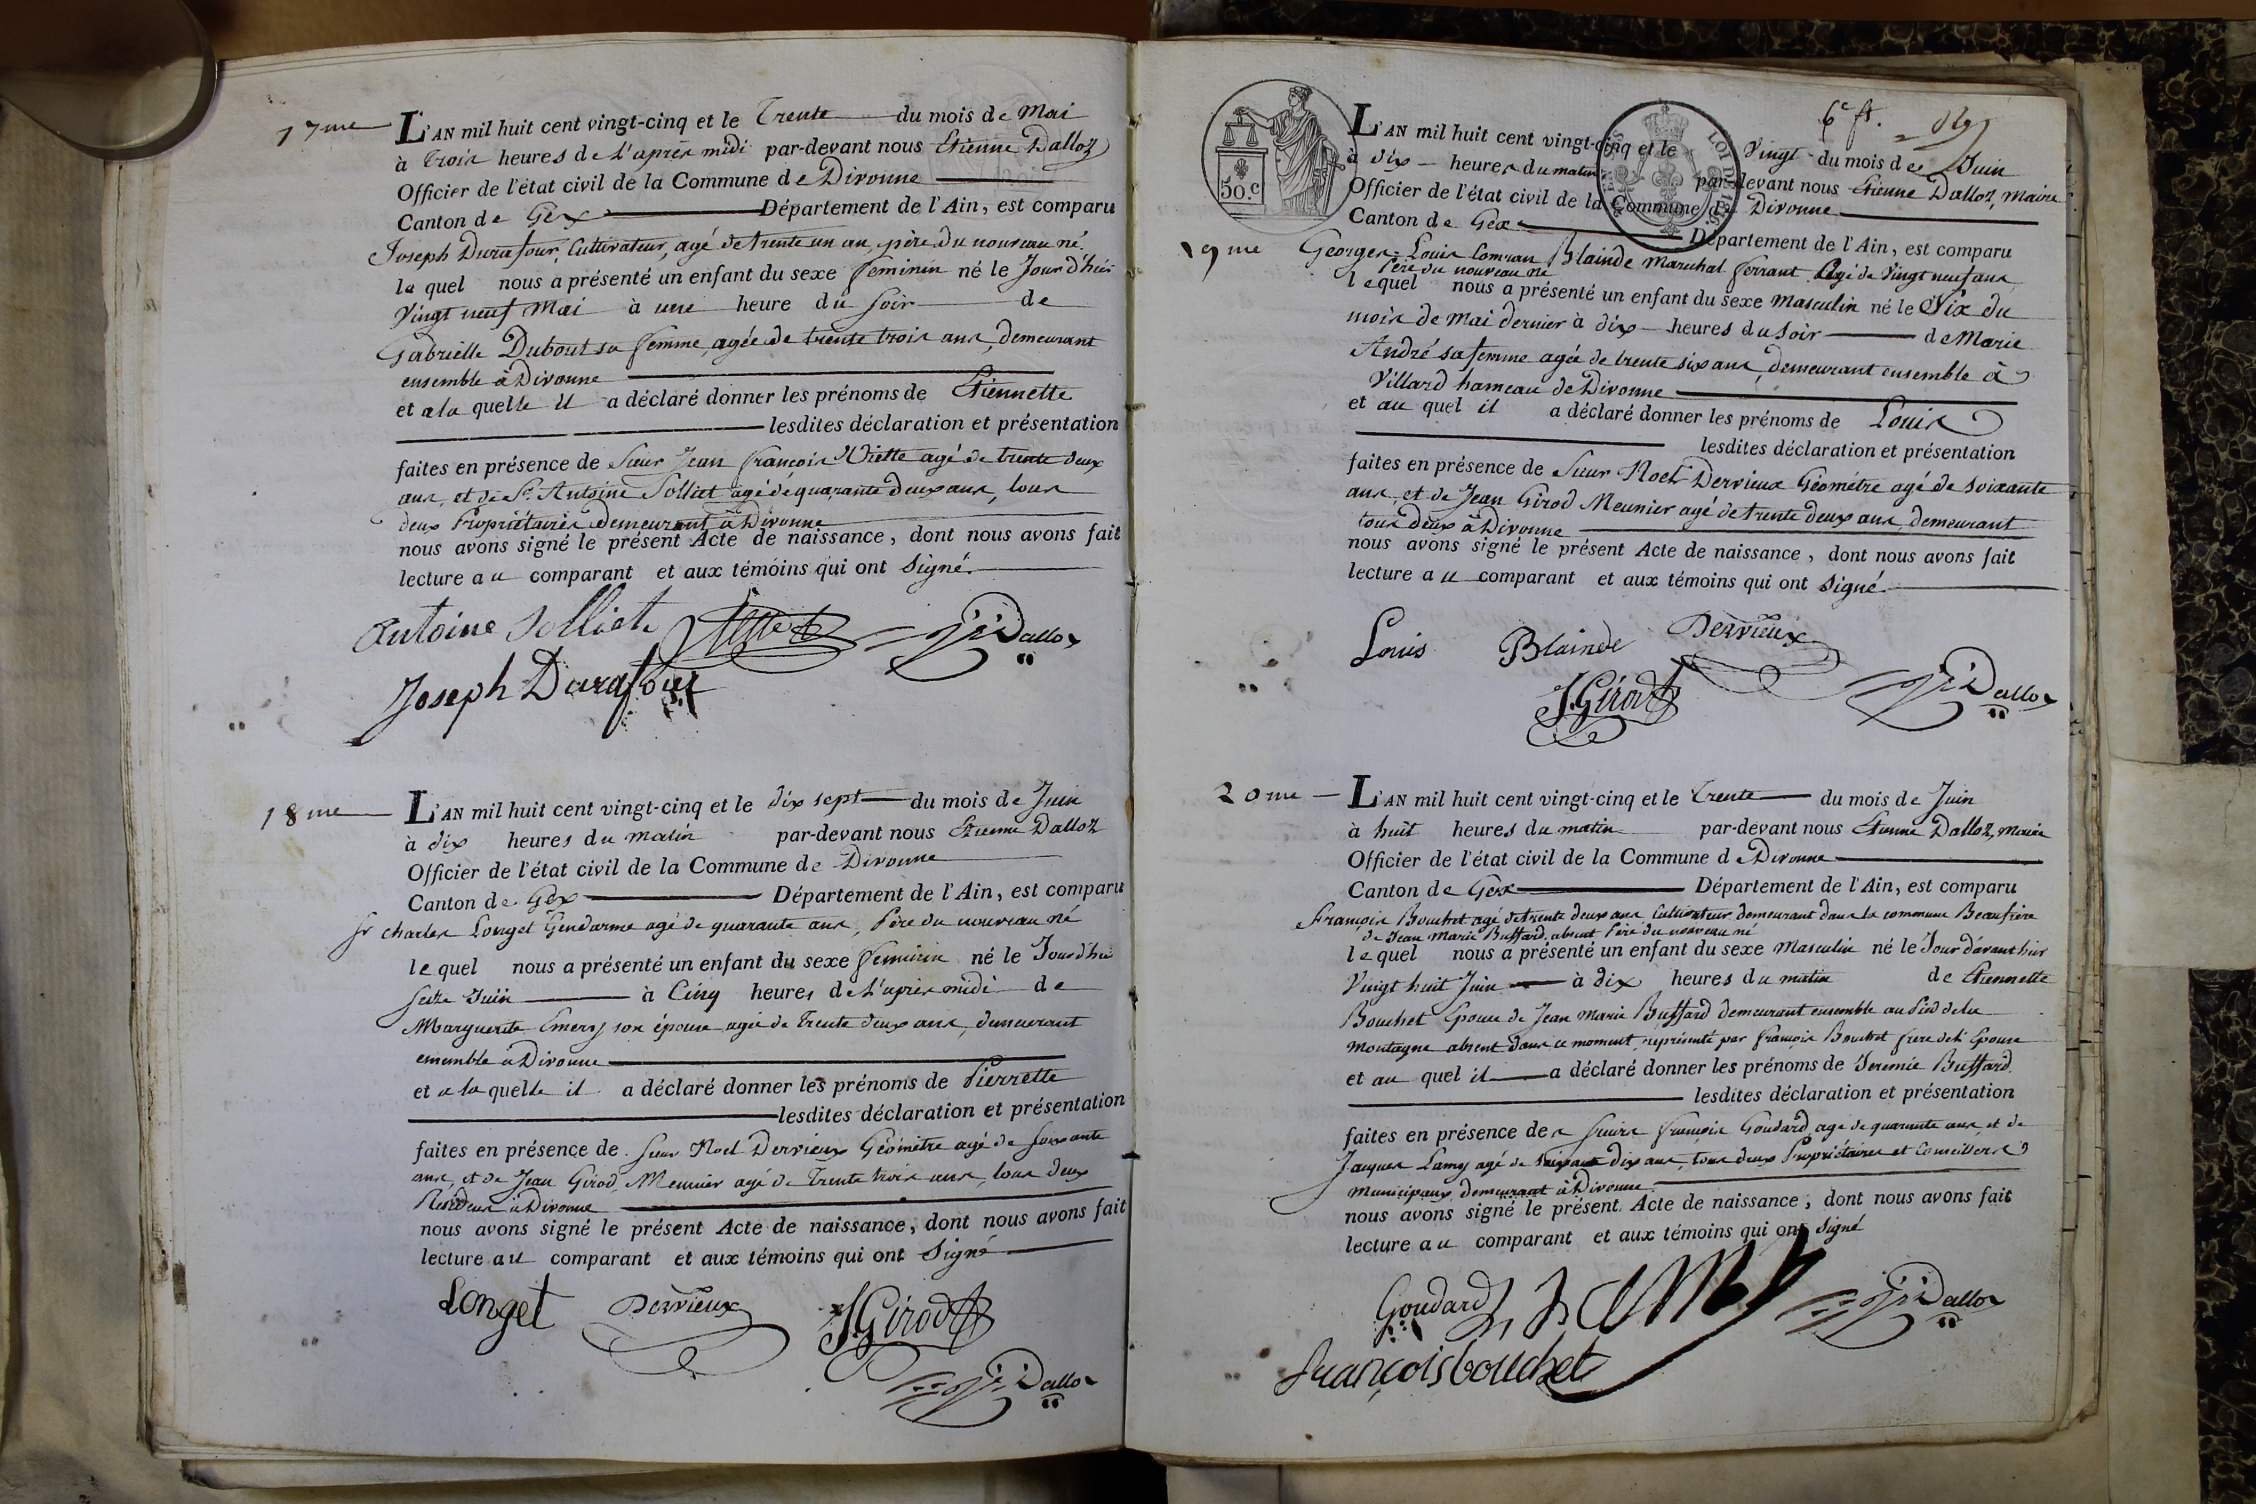 17me
L'AN mil huit cent vingt-cinq et le Trente du mois de Mai
à Trois heures de l'après midi par-devant nous Etienne Dalloz
Officier de l'état civil de la Commune de Divonne
Canton de Gex Département de l'Ain, est comparu
Joseph Durafour, Cultivateur, agé de trente un an, père du nouveau né.
le quel nous a présenté un enfant du sexe feminin né le Jour d'hier
Vingt neuf Mai à une heure du soir de
Gabrielle Dubout sa femme, agée de trente trois ans, demeurant
ensemble à Divonne
et a la quelle il a déclaré donner les prénoms de Etiennette
lesdites déclaration et présentation
faites en présence de Sieur Jean François Viette agé de trente deux
ans, et de Sr. Antoine Solliet agé de quarante deux ans, tous
deux Propriétaires demeurant à Divonne
nous avons signé le présent Acte de naissance, dont nous avons fait
lecture au comparant et aux témoins qui ont Signé.
Antoine Solliet Dalloz
Joseph Durafour
18me
L'AN mil huit cent vingt-cinq et le dix sept du mois de Juin
à dix heures du matin par-devant nous Etienne Dalloz
Officier de l'état civil de la Commune de Divonne
Canton de Gex Département de l'Ain, est comparu
Sr Charles Longet Gendarme agé de quarante ans, Père du nouveau né
le quel nous a présenté un enfant du sexe feminin né le Jour d'hier
Seize Juin à Cinq heures de l'après midi de
Marguerite Emery son épouse agée de Trente deux ans, demeurant
ensemble à Divonne
et a la quelle il a déclaré donner les prénoms de Pierrette
lesdites déclaration et présentation
faites en présence de Sieur Noel Dervieux Géomètre agé de soixante
ans, et de Jean Girod, Meunier agé de Trente trois ans, tous deux
à Divonne
nous avons signé le présent Acte de naissance, dont nous avons fait
lecture au comparant et aux témoins qui ont Signé
Longet Dervieux J. Girod
Dalloz
50.c
6e ft.
19me
L'AN mil huit cent vingt-cinq et le Vingt du mois de Juin
à dix heures du matin par-devant nous Etienne Dalloz, Maire
Officier de l'état civil de la Commune de Divonne
Canton de Gex Département de l'Ain, est comparu
Georges Louis Blainde Marechal ferrant Agé de Vingt neuf ans
Père du nouveau né
lequel nous a présenté un enfant du sexe Masculin né le Six du
mois de Mai dernier à dix heures du soir de Marie
André sa femme agée de trente six ans, demeurant ensemble à
Villard hameau de Divonne
et au quel il a déclaré donner les prénoms de Louis
lesdites déclaration et présentation
faites en présence de Sieur Noel Dervieux Géomètre agé de soixante
ans, et de Jean Girod Meunier agé de trente deux ans, demeurant
tous deux à Divonne
nous avons signé le présent Acte de naissance, dont nous avons fait
lecture au comparant et aux témoins qui ont Signé
Louis Blainde Dervieux
J. Girod Dalloz
20me
L'AN mil huit cent vingt-cinq et le Trente du mois de Juin
à huit heures du matin par-devant nous Etienne Dalloz, Maire
Officier de l'état civil de la Commune de Divonne
Canton de Gex Département de l'Ain, est comparu
François Bouchet agé de trente deux ans Cultivateur demeurant dans la commune Beaufrère
de Jean Marie Buffard, absent Père du nouveau né
lequel nous a présenté un enfant du sexe Masculin né le Jour d'avant hier
Vingt huit Juin à dix heures du matin de Etiennette
Bouchet Epouse de Jean Marie Buffard demeurant ensemble au Pied de la
Montagne absent dans ce moment, représenté par François Bouchet frère de l'Epouse
et au quel il a déclaré donner les prénoms de Jeremie Buffard
lesdites déclaration et présentation
faites en présence de s Sieurs François Goudard agé de quarante ans, et de
Jacques Lamy agé de dix ans, tous deux Propriétaires et Conseillers
Municipaux, demeurant à Divonne
nous avons signé le présent Acte de naissance, dont nous avons fait
lecture au comparant et aux témoins qui ont signé
Goudard Dalloz
françois bouchet